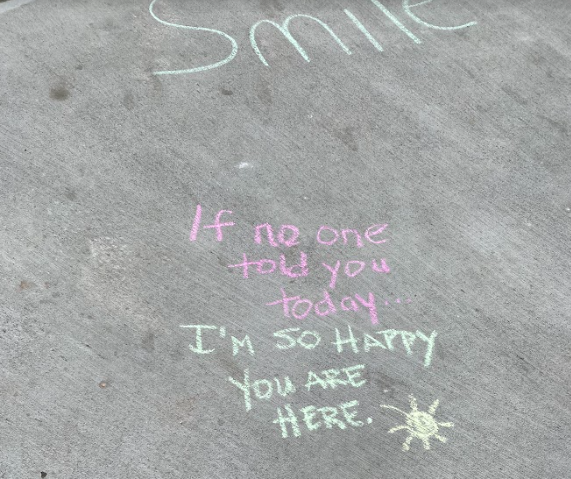 Smile
If no one
told you
today...
I'M SO HAPPY
YOU ARE
HERE.